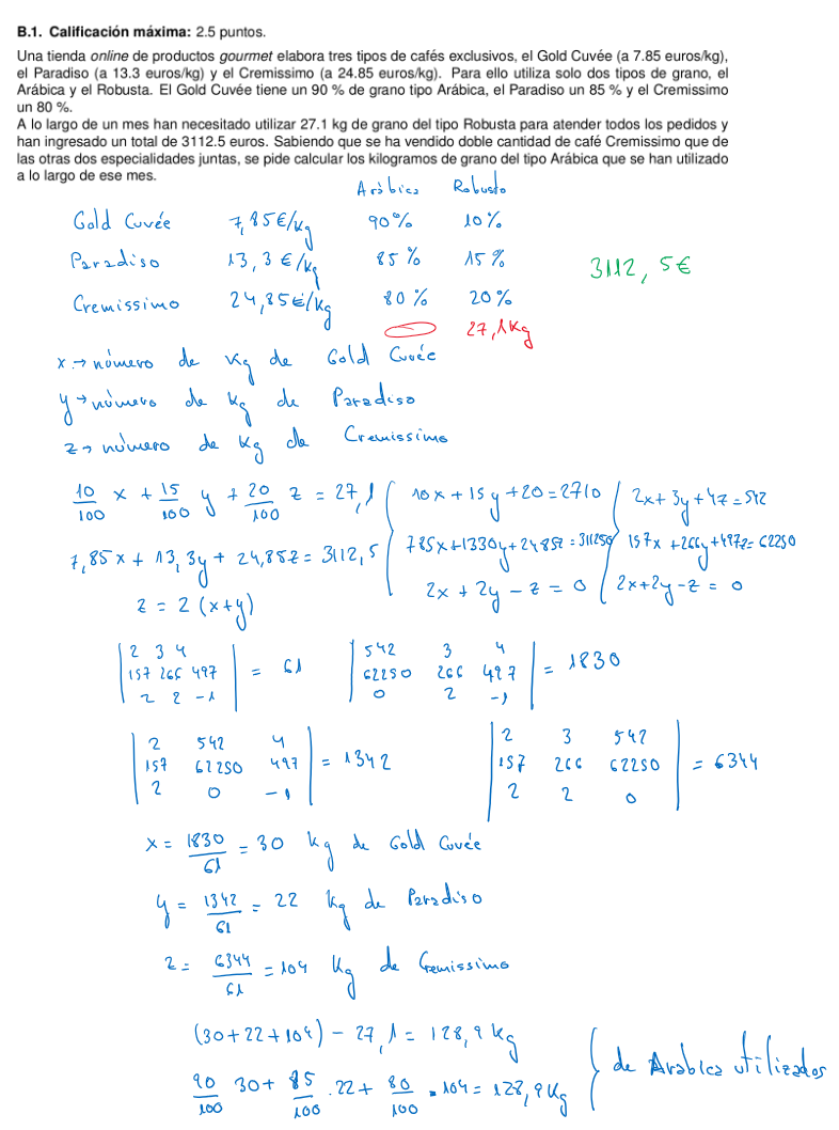 B.1. Calificación máxima: 2.5 puntos.
Una tienda online de productos gourmet elabora tres tipos de cafés exclusivos, el Gold Cuvée (a 7.85 euros/kg),
el Paradiso (a 13.3 euros/kg) y el Cremissimo (a 24.85 euros/kg). Para ello utiliza solo dos tipos de grano, el
Arábica y el Robusta. El Gold Cuvée tiene un 90 % de grano tipo Arábica, el Paradiso un 85 % y el Cremissimo
un 80 %.
A lo largo de un mes han necesitado utilizar 27.1 kg de grano del tipo Robusta para atender todos los pedidos y
han ingresado un total de 3112.5 euros. Sabiendo que se ha vendido doble cantidad de café Cremissimo que de
las otras dos especialidades juntas, se pide calcular los kilogramos de grano del tipo Arábica que se han utilizado
a lo largo de ese mes.
Arábica Robusto
Gold Cuvée 7,85€/kg 90% 10%
Paradiso 13,3 €/kg 85% 15%
3112,5€
Cremissimo 24,85€/kg 80% 20%
27,1Kg
x → número de Kg de Gold Cuvée
y → número de Kg de Paradiso
z → número de Kg de Cremissimo
10/100 x + 15/100 y + 20/100 z = 27,1 { 10x + 15y + 20 = 2710 { 2x + 3y + 4z = 542
7,85x + 13,3y + 24,85z = 3112,5 { 785x + 1330y + 2485z = 311250 { 157x + 266y + 497z = 62250
z = 2(x+y) { 2x + 2y - z = 0 { 2x + 2y - z = 0
| 2 3 4 | | 542 3 4 |
| 157 266 497 | = 61 | 62250 266 497 | = 1830
| 2 2 -1 | | 0 2 -1 |
| 2 542 4 | | 2 3 542 |
| 157 62250 497 | = 1342 | 157 266 62250 | = 6344
| 2 0 -1 | | 2 2 0 |
x = 1830/61 = 30 kg de Gold Cuvée
y = 1342/61 = 22 kg de Paradiso
z = 6344/61 = 104 Kg de Cremissimo
(30+22+104) - 27,1 = 128,9 kg
90/100 30 + 85/100 . 22 + 80/100 . 104 = 128,9 Kg } de Arábica utilizados